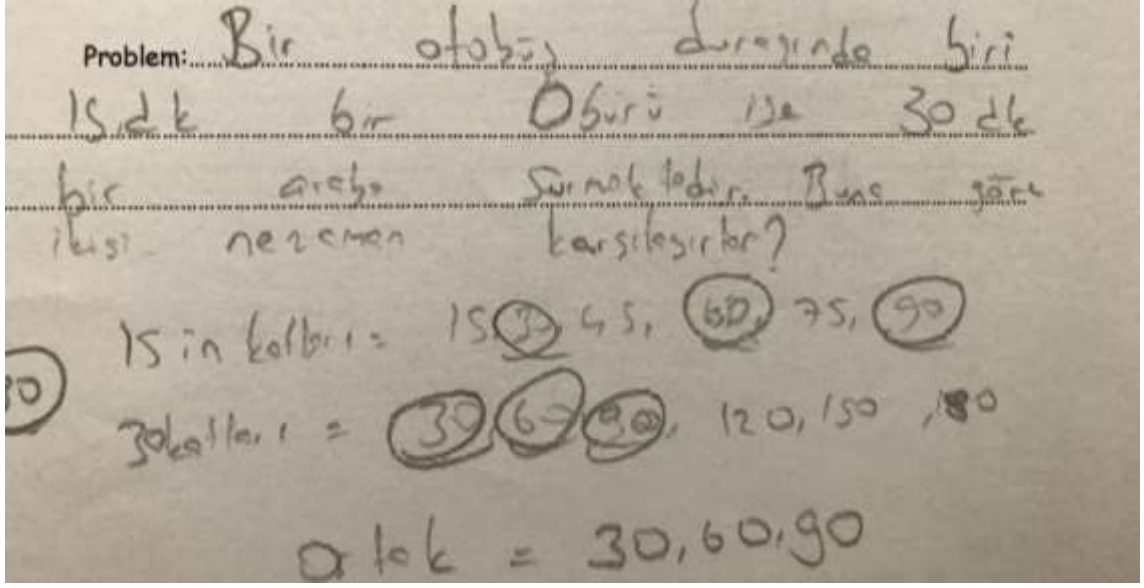 Problem: Bir otobüs durağında biri
15 dk bir Öbürü ise 30 dk
bir araba sürmektedir. Buna göre
ikisi ne zaman karşılaşırlar?
15 in katları = 15, 30, 45, 60, 75, 90
30
30 katları = 30, 60, 90, 120, 150, 180
Ortak = 30, 60, 90